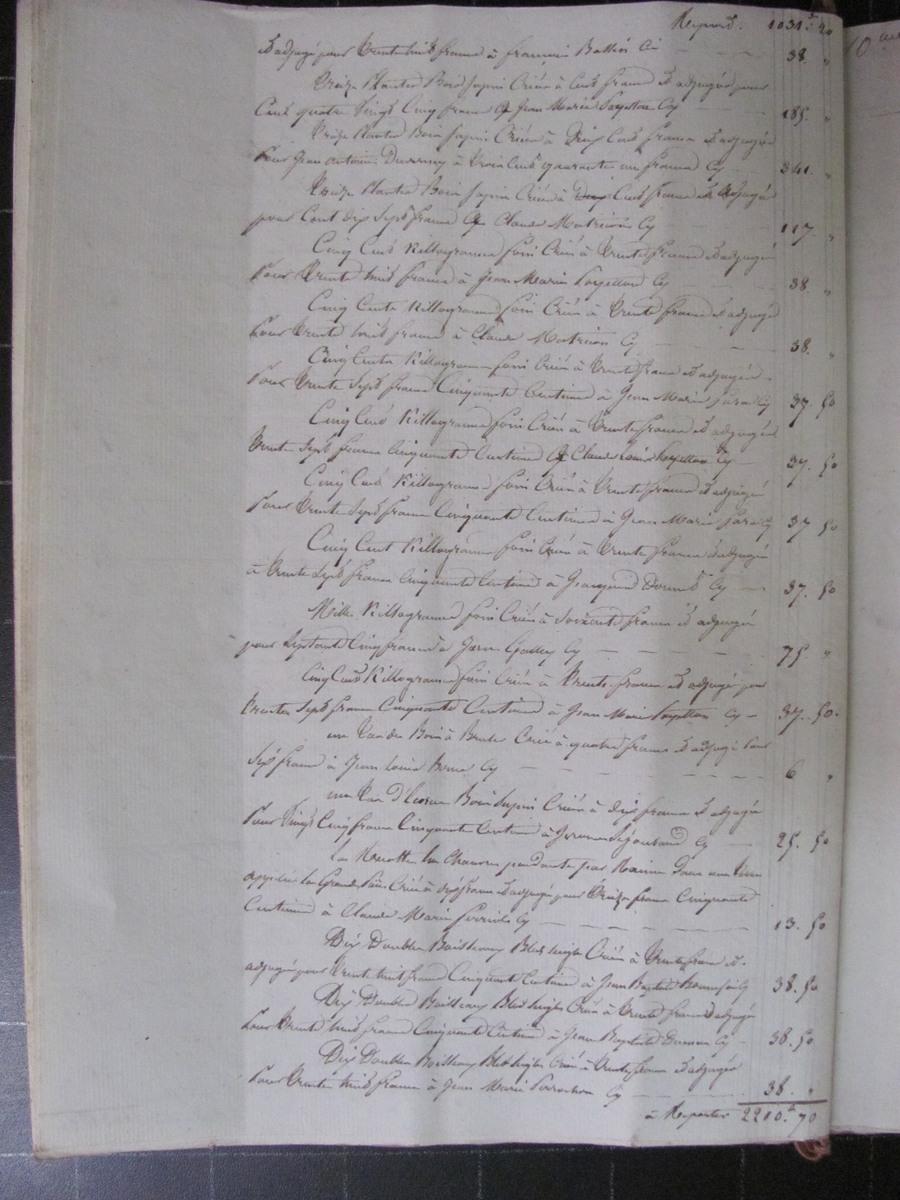 Report. 1031. 20
Et adjugé pour Trente huit francs à francois Cy 38. "
Treize Plantes Bois sapin Criées à Cent francs Et adjugées pour
Cent quatre vingt Cinq francs à Jean Marie Cy 185. "
Treize Plantes Bois sapin Criées à Deux Cent francs Et adjugées
Pour Jean antoine Duverney à trois Cent quarante un francs Cy 341. "
Treize Plantes Bois sapin Criées à Cent francs Et Adjugées
pour Cent dix Sept francs à Claude Cy 117. "
Cinq Cent Killogrammes foin Criés à Trente francs Et adjugés
Pour Trente huit francs à Jean Marie Cy 38. "
Cinq Cents Killogrammes foin Criés à Trente francs Et adjugés
Pour Trente huit francs à Claude Cy 38. "
Cinq Cents Killogrammes foin Criés à Trente francs Et adjugés
Pour Trente Sept francs Cinquante Centimes à Jean Marie Cy 37. 50
Cinq Cent Killogrammes foin Criés à Trente francs Et adjugés
Trente Sept francs Cinquante Centimes à Claude Louis Cy 37. 50
Cinq Cent Killogrammes foin Criés à Trente francs Et adjugés
Pour Trente Sept francs Cinquante Centimes à Jean Marie Cy 37 50
Cinq Cent Killogrammes foin Criés à Trente francs Et adjugés
à Trente Sept francs Cinquante Centimes à Cy 37. 50
Mille Killogrammes foin Criés à Soixante francs Et adjugés
pour Septante Cinq francs à Cy 75 "
Cinq Cent Killogrammes foin Criés à Trente francs Et adjugés pour
Trente Sept francs Cinquante Centimes à Jean Marie Cy 37. 50.
un Tas de Bois à Bruler Crié à quatre francs Et adjugé Pour
Six francs à Jean Louis Cy 6 "
un Tas Bois Sapin Crié à dix francs Et adjugé
Pour Vingt Cinq francs Cinquante Centimes à Cy 25. 50
La Recolte en Chanvre pendante par Racine Dans un
appellé La Grande Crié à dix francs Et adjugé pour Treize francs Cinquante
Centimes à Claude Marie Cy 13. 50
Dix Doubles Boisseaux Bled Seigle Criés à Trente francs Et
adjugés pour Trente huit francs Cinquante Centimes à Jean Baptiste Cy 38. 50
Dix Doubles Boisseaux Bled Seigle Criés à Trente francs Et adjugés
Pour Trente huit francs Cinquante Centimes à Jean Baptiste Cy 38. 50
Dix Doubles Boisseaux Bled Seigle Criés à Trente francs Et adjugés
Pour Trente huit francs à Jean Marie Cy 38. "
à Reporter 2210. 70